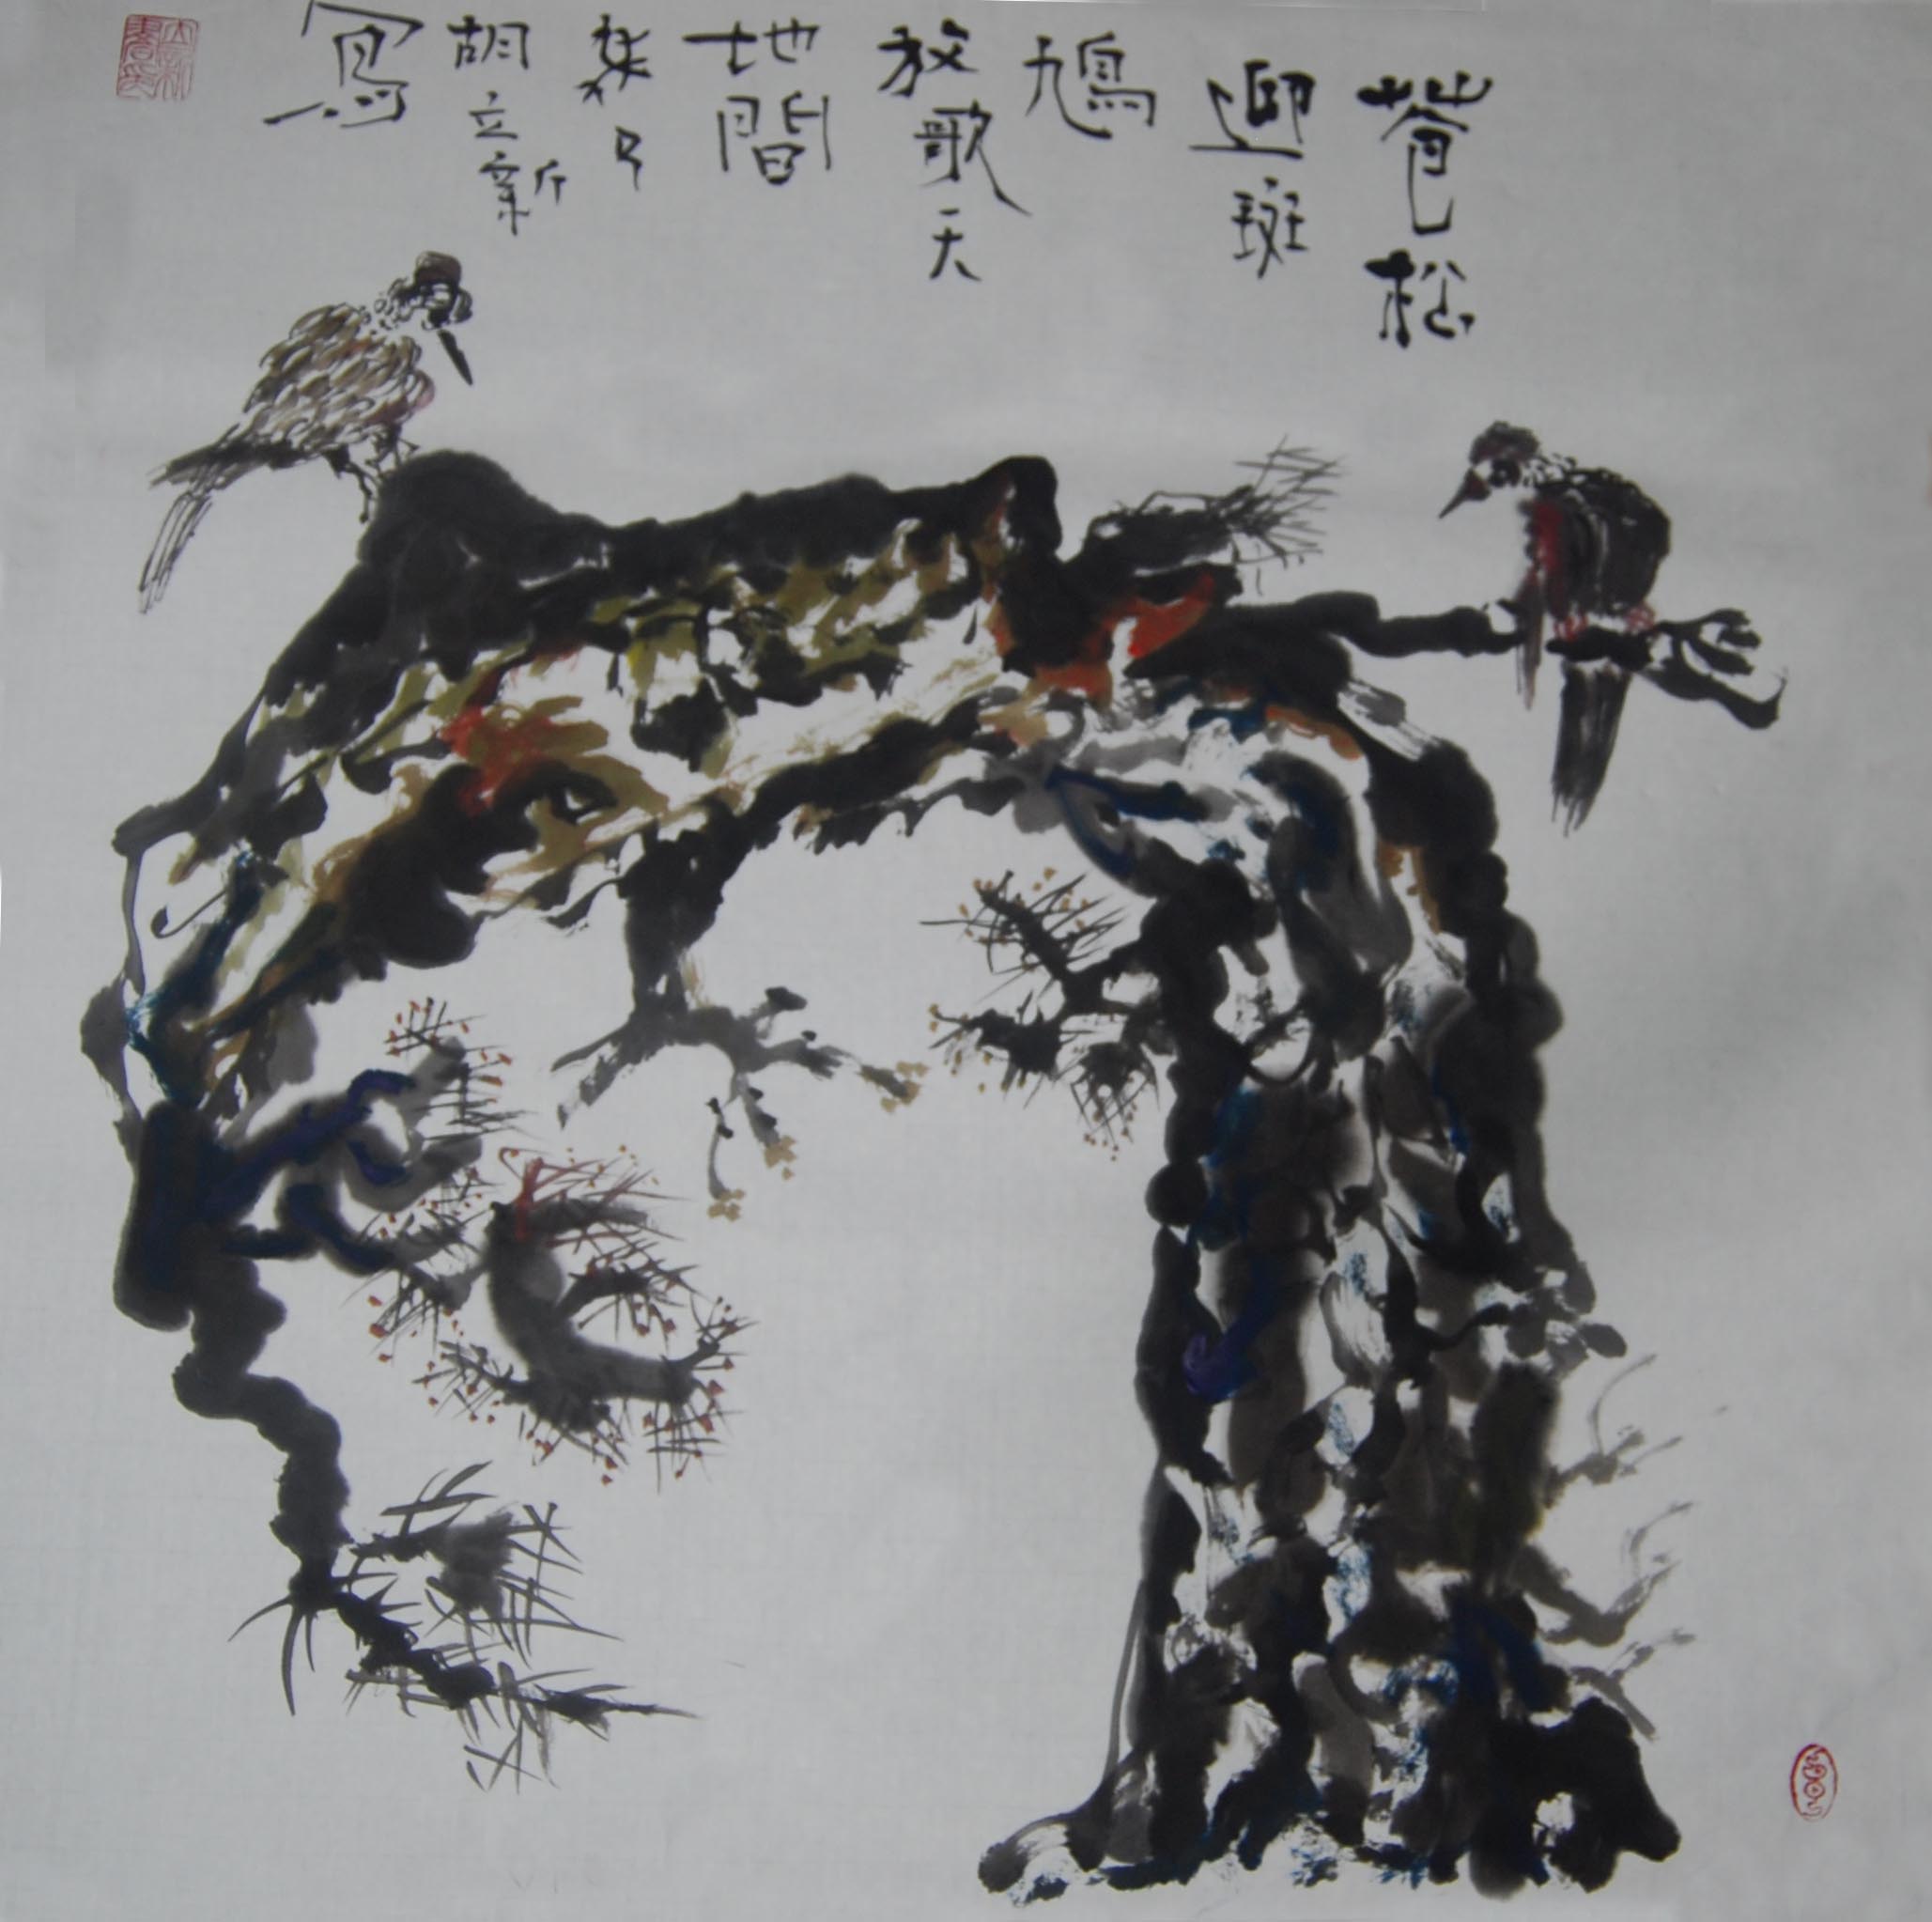 蒼松
迎斑
鳩
放歌天
地間
胡立新
寫